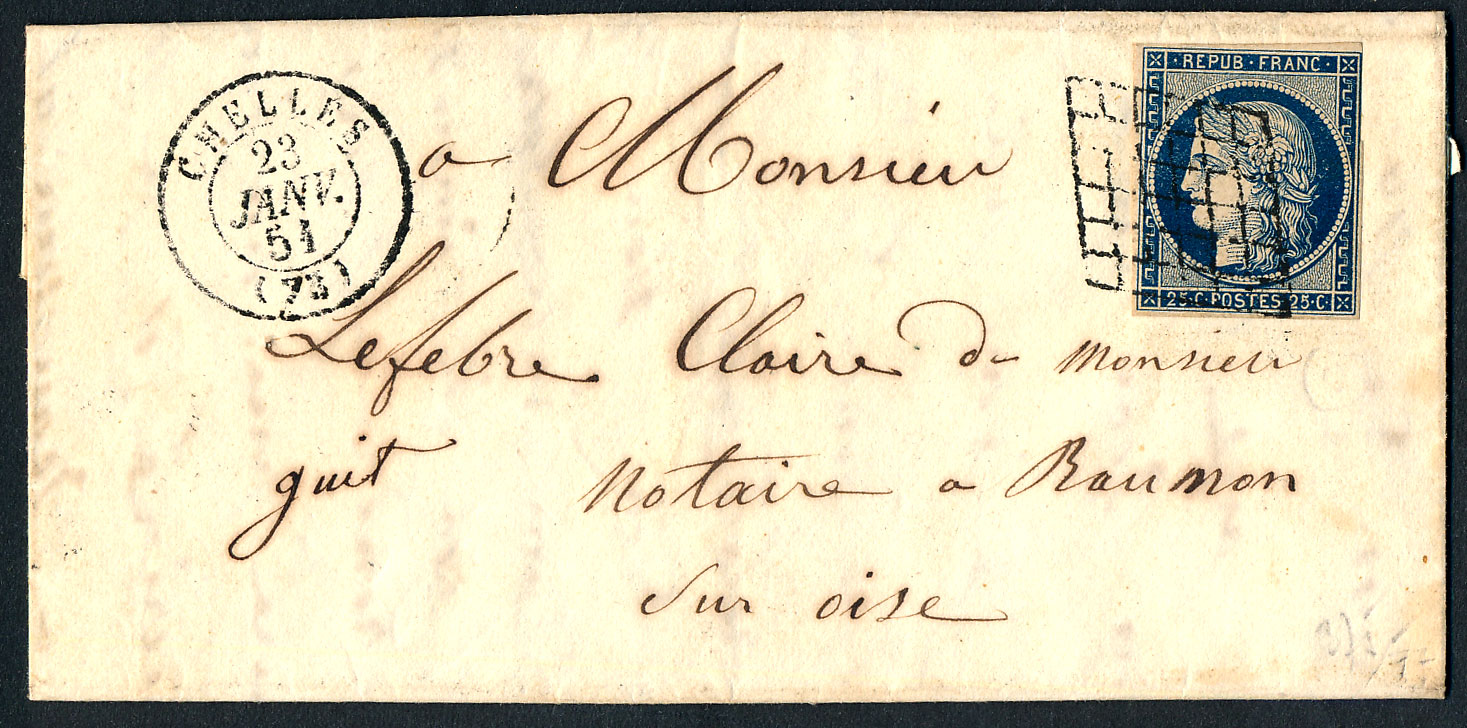 REPUB · FRANC ·
CHELLES
23
JANV.
51
(73)
a Monsieur
25·C·POSTES 25·C·
Lefebre Claire de monsieu
guit notaire a Baumon
sur oise